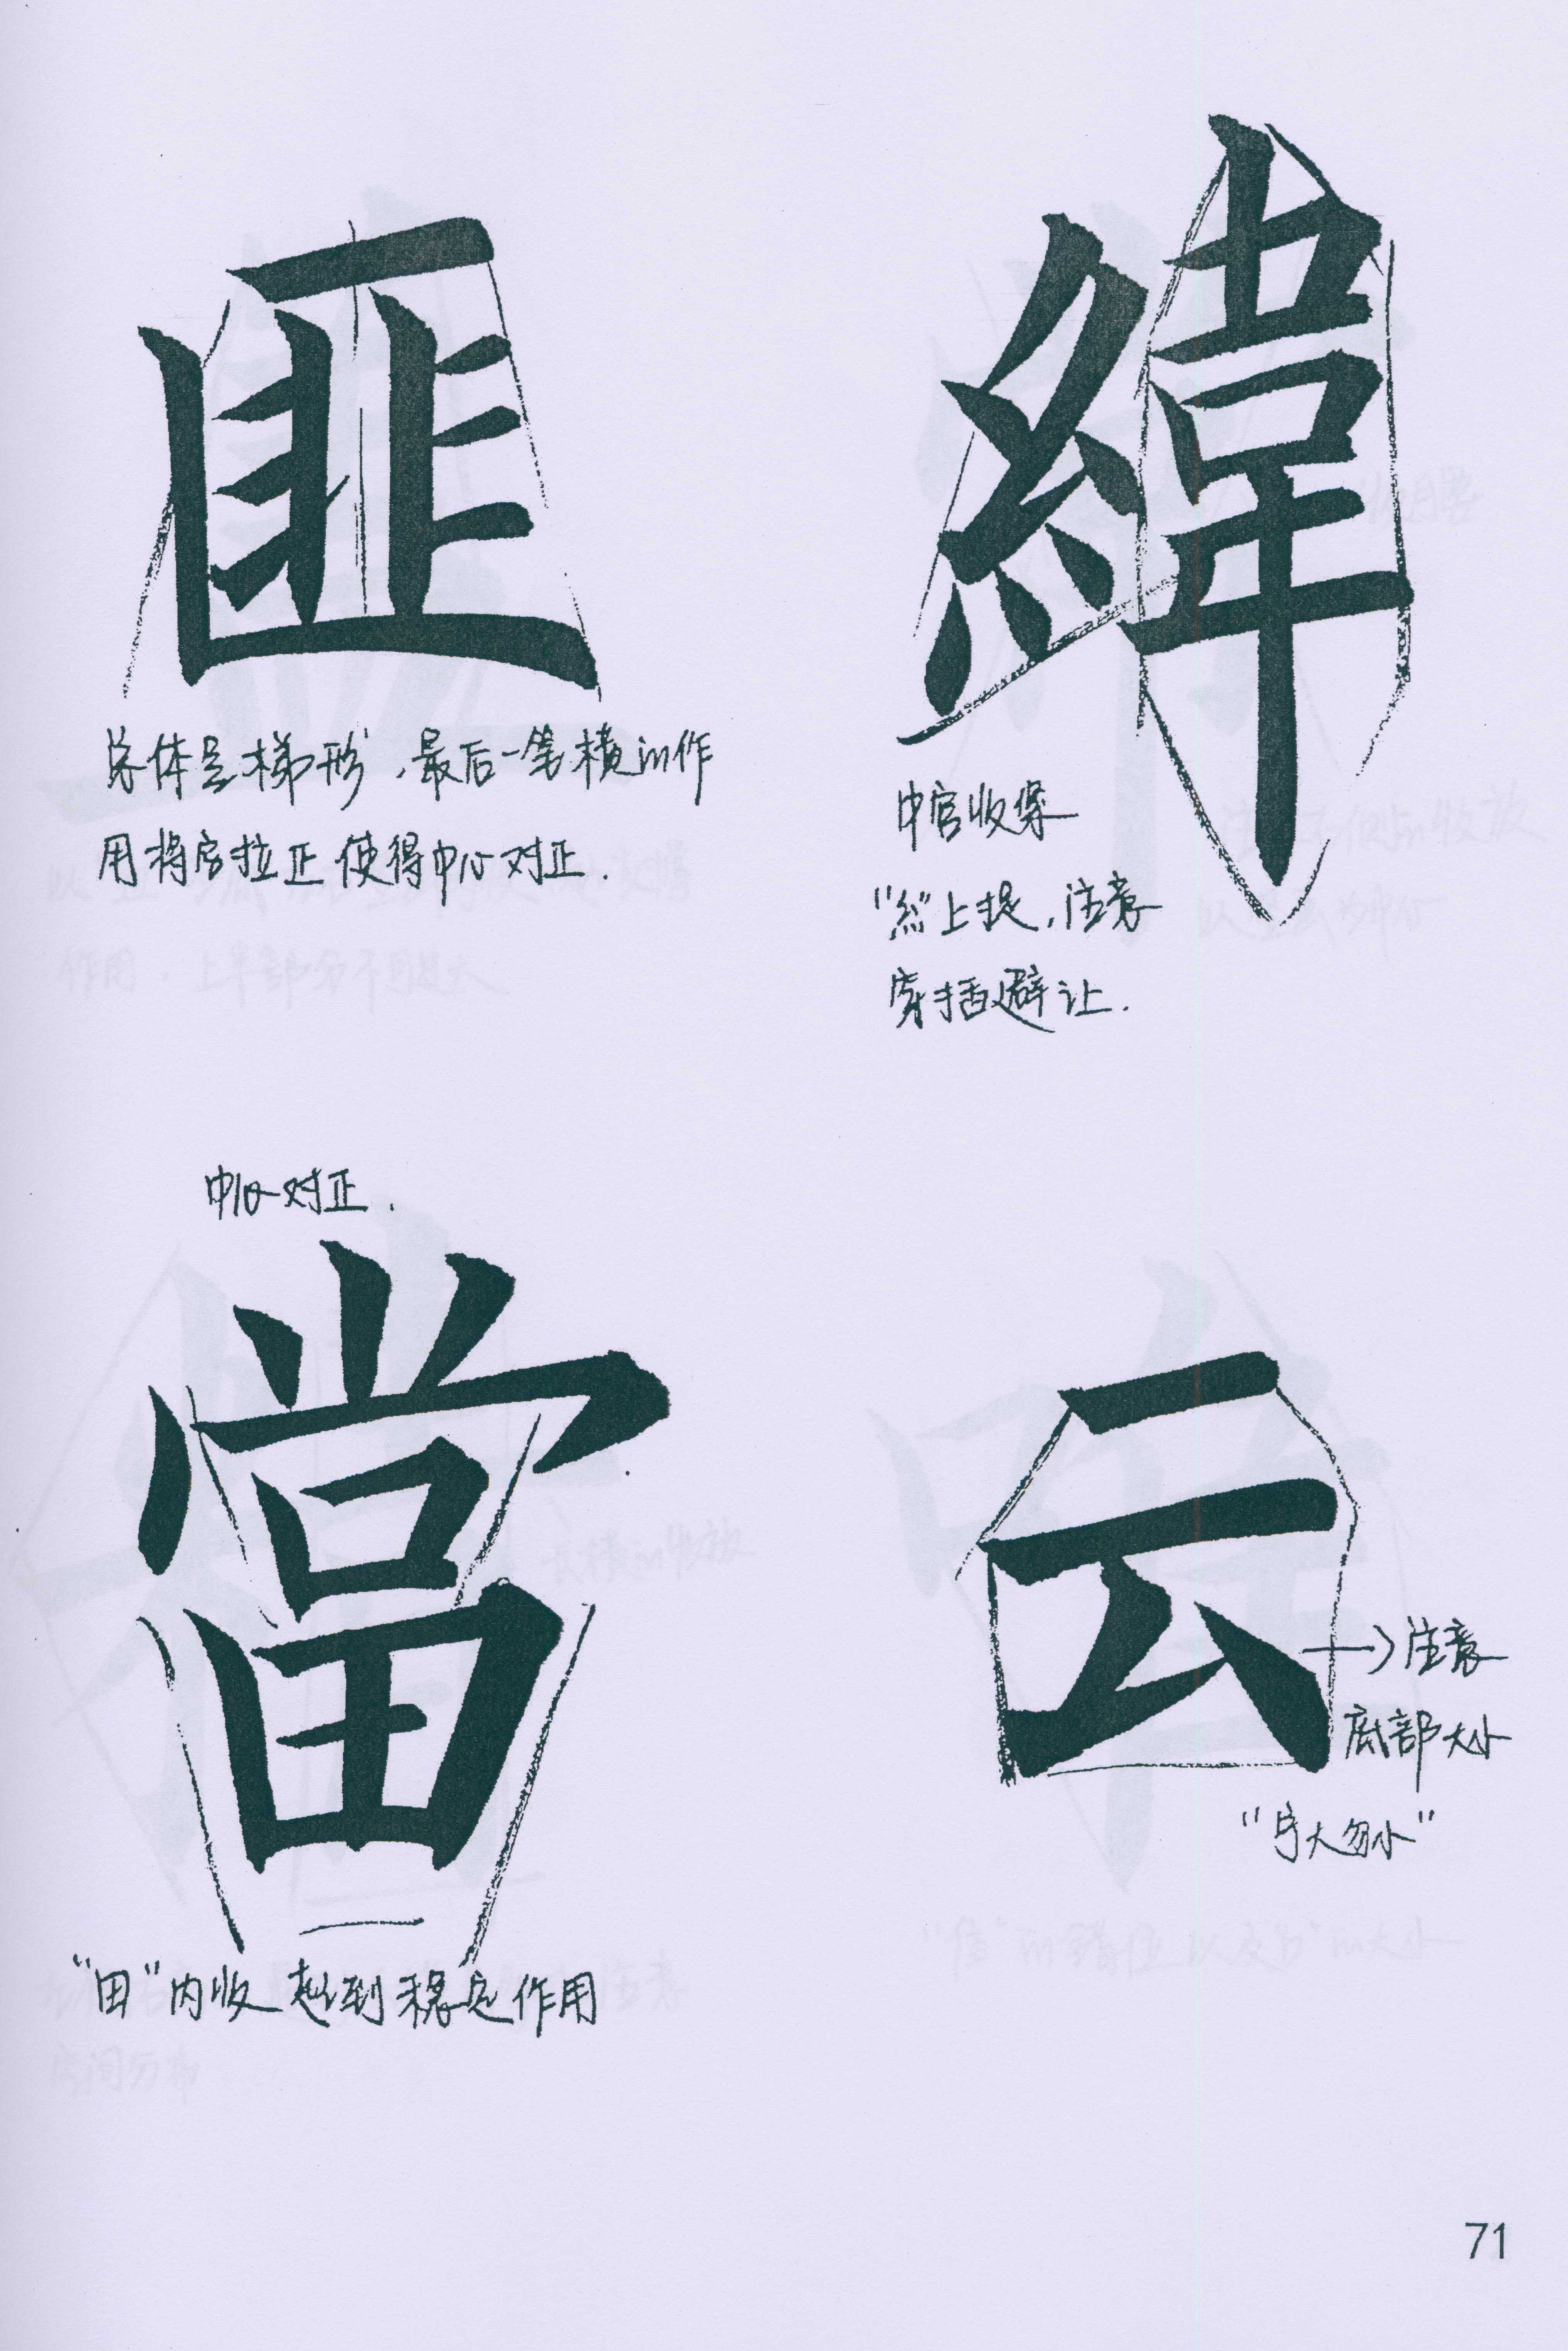 匪
总体呈梯形，最后一笔横的作
用将字拉正使得中心对正．
緯
中宫收紧
"糹"上提，注意
穿插避让．
中心对正．
當
"田"内收起到稳定作用
云
→注意
底部大小
"宁大勿小"
71